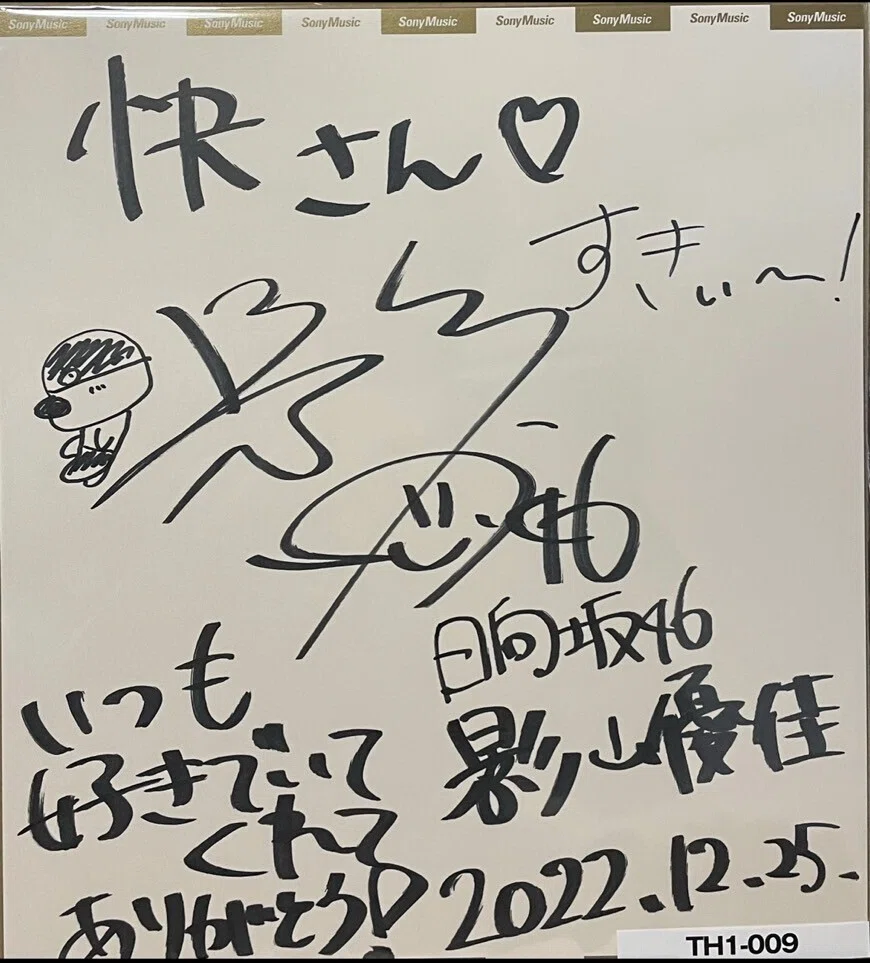 SonyMusic SonyMusic SonyMusic SonyMusic SonyMusic SonyMusic SonyMusic SonyMusic SonyMusic
快さん♡
すきぃ〜!
46
日向坂46
影山優佳
いつも
好きでいて
くれて
ありがとう♡
2022.12.25.
TH1-009